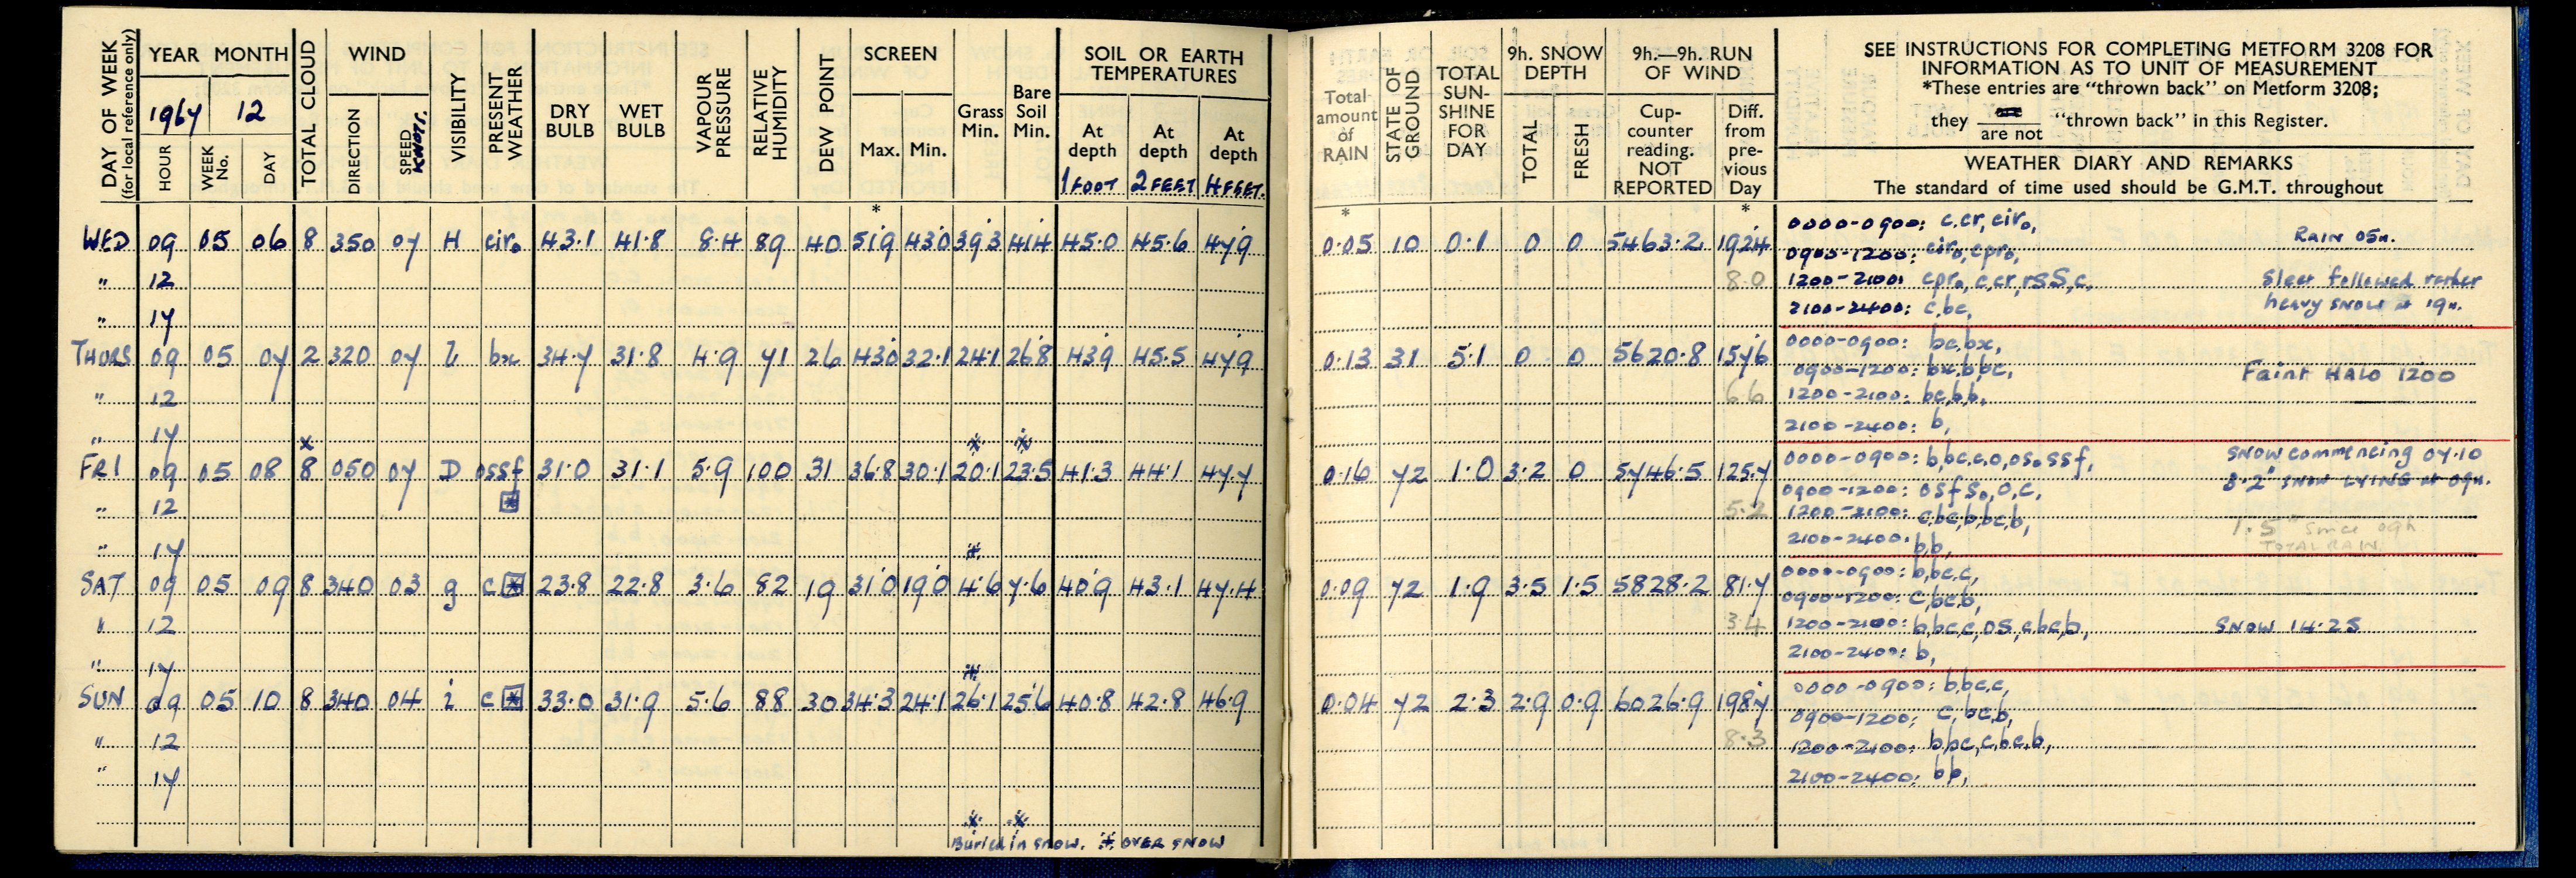 DAY OF WEEK
(for local reference only)
YEAR MONTH
1967 12
HOUR WEEK No. DAY
TOTAL CLOUD
WIND
DIRECTION SPEED KNOTS.
VISIBILITY
PRESENT WEATHER
DRY BULB
WET BULB
VAPOUR PRESSURE
RELATIVE HUMIDITY
DEW POINT
SCREEN
Max. Min.
Grass Min.
Bare Soil Min.
SOIL OR EARTH TEMPERATURES
At depth 1 FOOT
At depth 2 FEET
At depth 4 FEET.
*
WED 09 05 06 8 350 07 H cir₀ 43.1 41.8 8.4 89 40 51.9 43.0 39.3 41.4 45.0 45.6 47.9
" 12
" 17
THURS 09 05 07 2 320 07 i bx 34.7 31.8 4.9 71 26 43.0 32.1 24.1 26.8 43.9 45.5 47.9
" 12
" 17 x
FRI 09 05 08 8 050 07 D ossf 31.0 31.1 5.9 100 31 36.8 30.1 20.1 23.5 41.3 44.1 47.7
" 12
" 17
SAT 09 05 09 8 340 03 g c 23.8 22.8 3.6 82 19 31.0 19.0 4.6 7.6 40.9 43.1 47.4
" 12
" 17
SUN 09 05 10 8 340 04 i c 33.0 31.9 5.6 88 30 34.3 24.1 26.1 25.6 40.8 42.8 46.9
" 12
" 17
Buried in snow. OVER SNOW
Total amount of RAIN
STATE OF GROUND
TOTAL SUN-SHINE FOR DAY
9h. SNOW DEPTH
TOTAL FRESH
9h.—9h. RUN OF WIND
Cup-counter reading. NOT REPORTED
Diff. from pre-vious Day
SEE INSTRUCTIONS FOR COMPLETING METFORM 3208 FOR
INFORMATION AS TO UNIT OF MEASUREMENT
*These entries are "thrown back" on Metform 3208;
they are / are not "thrown back" in this Register.
WEATHER DIARY AND REMARKS
The standard of time used should be G.M.T. throughout
* *
0.05 10 0.1 0 0 5463.2 192.4 0000-0900: c.cr, cir₀, RAIN 05h.
0900-1200: cir₀, cpr₀,
8.0 1200-2100: cpr₀, c, cr, rsS, c, Sleet followed rather
2100-2400: c, bc, heavy SNOW at 19h.
0.13 31 5.1 0 0 5620.8 157.6 0000-0900: bc, bx,
0900-1200: bx, b, bc, Faint HALO 1200
6.6 1200-2100: bc, b, b,
2100-2400: b,
0.16 72 1.0 3.2 0 5746.5 125.7 0000-0900: b, bc, c, o, os₀, ssf, SNOW commencing 07.10
0900-1200: osfs₀, o, c, 3.2" SNOW LYING AT 09h.
5.2 1200-2100: c, bc, b, bc, b, 1.5" Since 09h
2100-2400: b, b, TOTAL RAIN
0.09 72 1.9 3.5 1.5 5828.2 81.7 0000-0900: b, bc, c,
0900-1200: c, bc, b,
3.4 1200-2100: b, bc, c, os, c, bc, b, SNOW 14.25
2100-2400: b,
0.04 72 2.3 2.9 0.9 6026.9 198.7 0000-0900: b, bc, c,
0900-1200: c, bc, b,
8.3 1200-2100: b, bc, c, bc, b,
2100-2400: b, b,